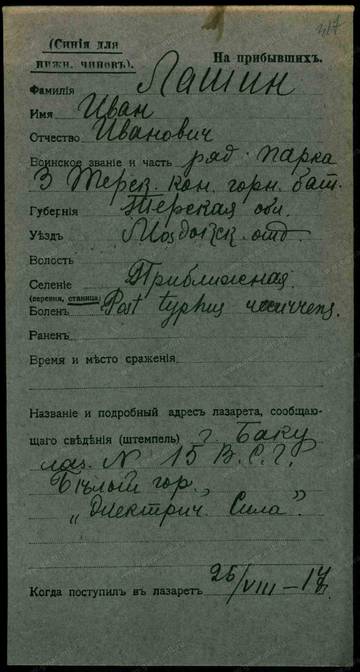 417
(Синія для
нижн. чиновъ).
На прибывшихъ.
Фамилія Лашин
Имя Иван
Отчество Иванович
Воинское званіе и часть ряд. парка
3 Терск. кон. горн. бат.
Губернія Терская обл.
Уѣздъ Моздокск. отд.
Волость
Селеніе Приближная
(деревня, станица)
Боленъ Post typhus
Раненъ
Время и мѣсто сраженія
Названіе и подробный адресъ лазарета, сообщаю-
щаго свѣдѣнія (штемпель) г. Баку
лаз. № 15 В.С.Г.
Бѣлый гор.
"Электрич. Сила".
Когда поступилъ въ лазаретъ 25/VIII—17 г.